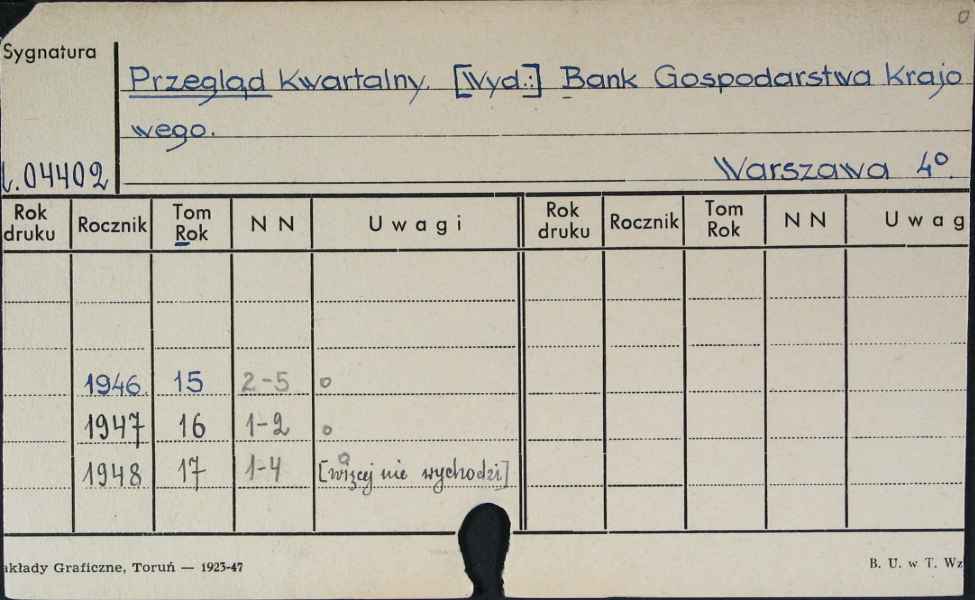 o
Sygnatura
Przegląd Kwartalny. [Wyd.:] Bank Gospodarstwa Krajo
wego.
04402
Warszawa 4°.
Rok druku Rocznik Tom Rok N N Uwagi Rok druku Rocznik Tom Rok N N Uwag
1946. 15 2-5 o
1947 16 1-2 o
1948 17 1-4 o [więcej nie wychodzi]
akłady Graficzne, Toruń — 1923-47 B. U. w T. Wz